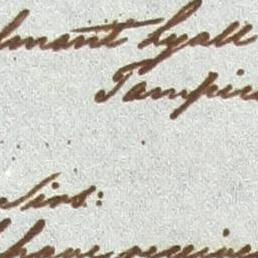 lmant Lyall
Tampico
Sirs:
have receive